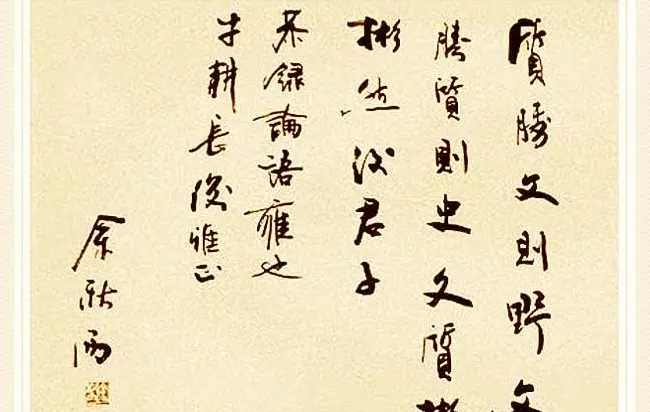 質勝文則野文
勝質則史文質彬
彬然後君子
恭録論語雍也
牛耕長復雅正
余秋雨